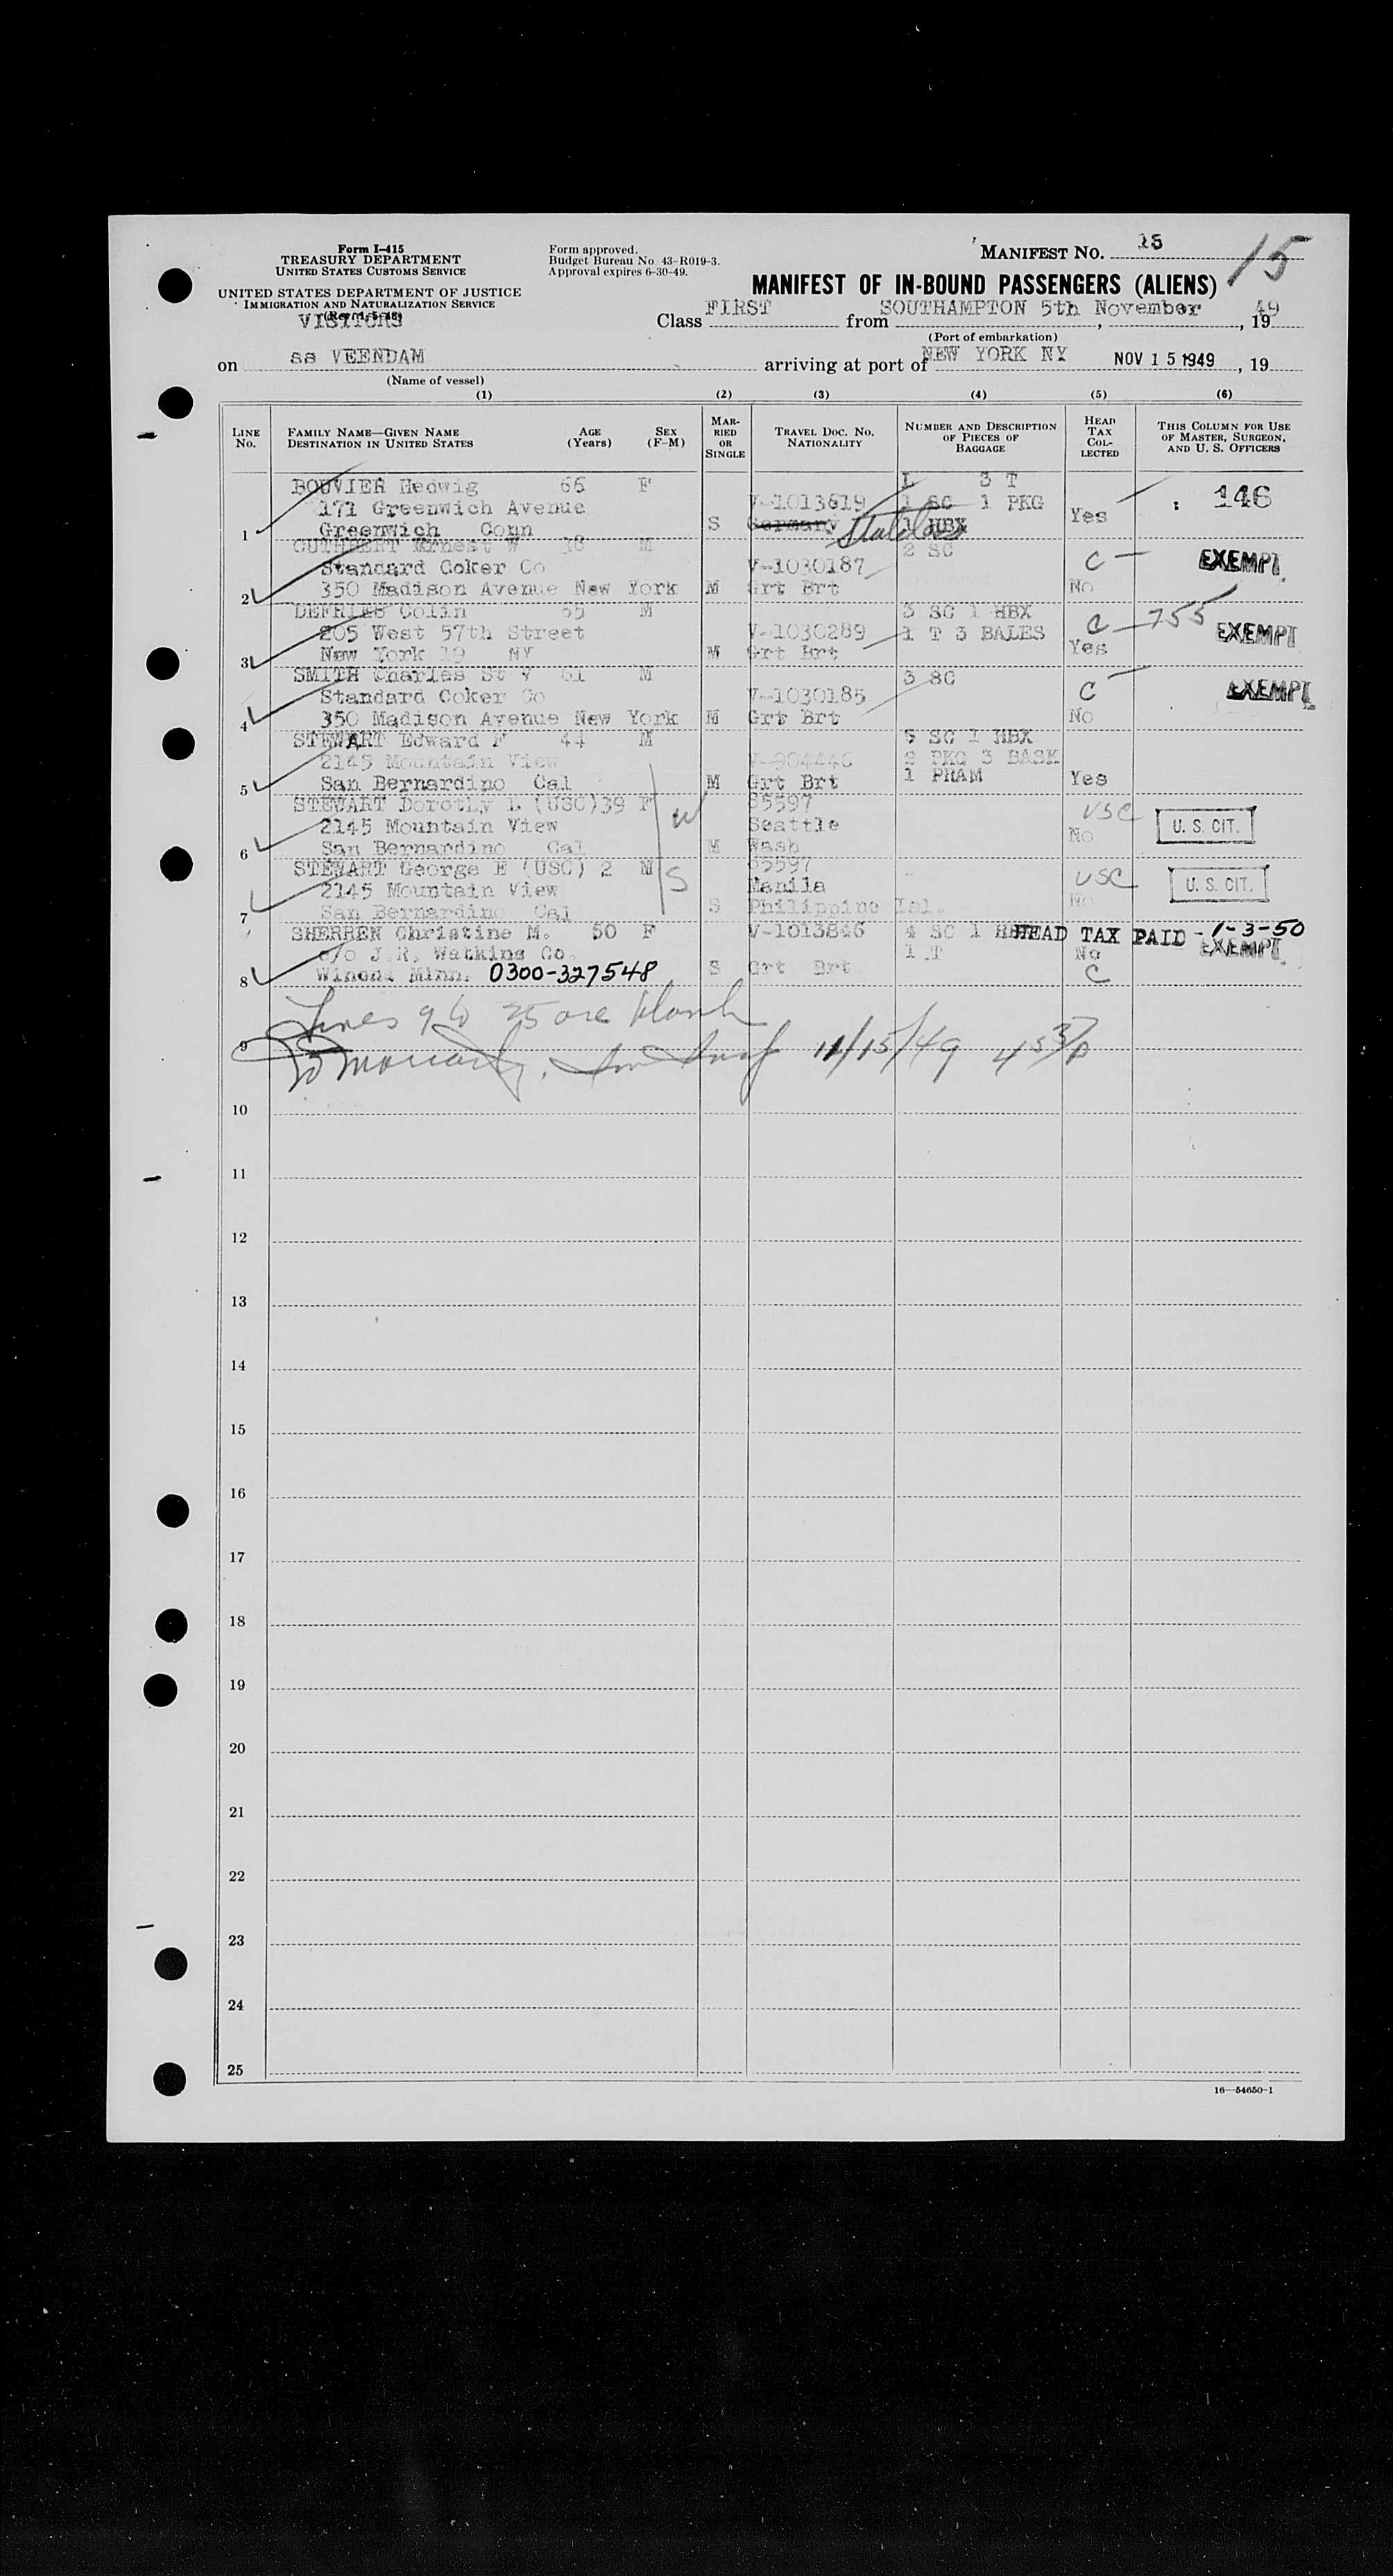 Form I-415
TREASURY DEPARTMENT
UNITED STATES CUSTOMS SERVICE
UNITED STATES DEPARTMENT OF JUSTICE
IMMIGRATION AND NATURALIZATION SERVICE
VISITORS
Form approved.
Budget Bureau No. 43-R019-3.
Approval expires 6-30-49.
MANIFEST No. 15
15
MANIFEST OF IN-BOUND PASSENGERS (ALIENS)
Class FIRST from SOUTHAMPTON 5th November, 1949
(Port of embarkation)
on ss VEENDAM arriving at port of NEW YORK NY NOV 15 1949, 19
(Name of vessel)
(1) (2) (3) (4) (5) (6)
LINE No.
FAMILY NAME—GIVEN NAME DESTINATION IN UNITED STATES
AGE (Years)
SEX (F-M)
MARRIED OR SINGLE
TRAVEL DOC. NO. NATIONALITY
NUMBER AND DESCRIPTION OF PIECES OF BAGGAGE
HEAD TAX COLLECTED
THIS COLUMN FOR USE OF MASTER, SURGEON, AND U. S. OFFICERS
BOUVIER Hedwig 66 F 3 T
171 Greenwich Avenue V-1013619 1 SC 1 PKG 146
1 Greenwich Conn S Germany Stateless 1 HBX Yes
CUTHBERT Ernest W 38 M 2 SC
Standard Coker Co V-1030187 C — EXEMPT
2 350 Madison Avenue New York M Grt Brt No
DEFRIES Colin 65 M 3 SC 1 HBX
205 West 57th Street V-1030289 1 T 3 BALES C — 755 EXEMPT
3 New York 19 NY M Grt Brt Yes
SMITH Charles St V 61 M 3 SC
Standard Coker Co V-1030185 C EXEMPT
4 350 Madison Avenue New York M Grt Brt No
STEWART Edward F 44 M SC 1 HBX
2145 Mountain View V-904446 PKG 3 BASK
5 San Bernardino Cal M Grt Brt 1 PRAM Yes
STEWART Dorothy L (USC) 39 F W 85597 USC
2145 Mountain View Seattle U. S. CIT.
6 San Bernardino Cal M Wash No
STEWART George E (USC) 2 M S 85597
2145 Mountain View Manila USC U. S. CIT.
7 San Bernardino Cal S Philippine Isl. No
SHERREN Christine M. 50 F V-1013846 4 SC 1 HEAD TAX PAID - 1-3-50
c/o J.R. Watkins Co. 1 T No EXEMPT
8 Winona Minn. 0300-327548 S Grt Brt C
Lines 9 to 25 are blank
9 11/15/49
10
11
12
13
14
15
16
17
18
19
20
21
22
23
24
25
16—54650-1